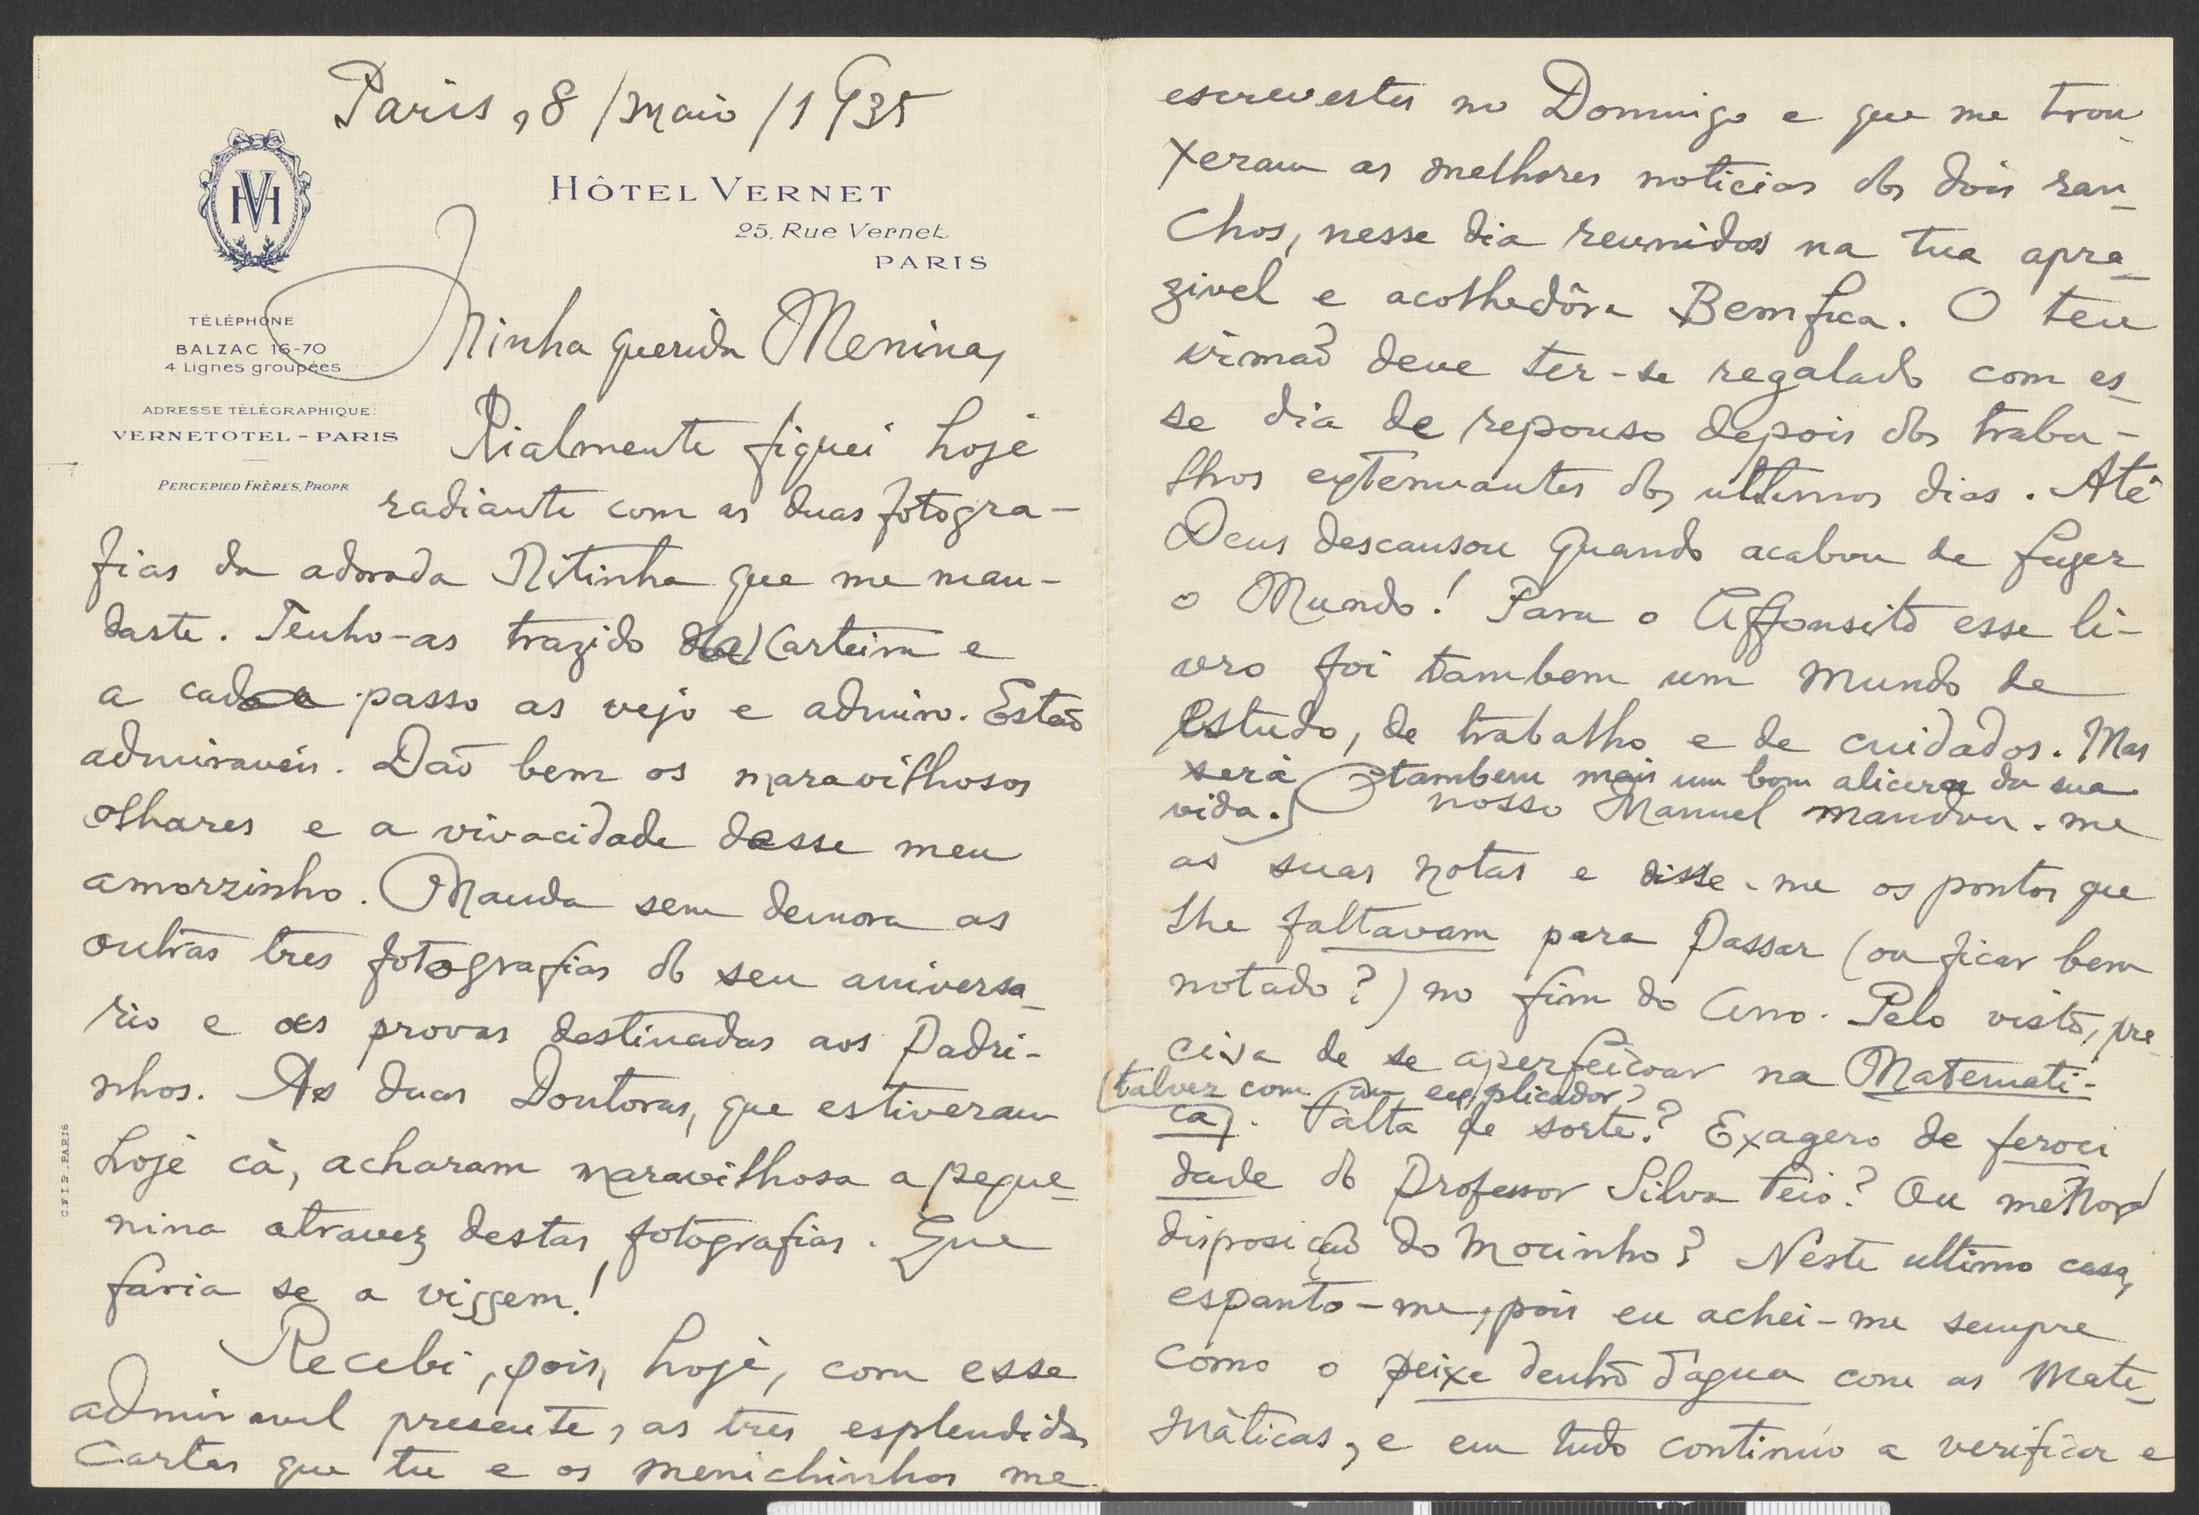 Paris, 8/Maio/1935
HV
HÔTEL VERNET
25, Rue Vernet
PARIS
TÉLÉPHONE
BALZAC 16-70
4 Lignes groupées
ADRESSE TÉLÉGRAPHIQUE:
VERNETOTEL - PARIS
PERCEPIED FRÈRES, PROPR
Minha querida Menina,
Rialmente fiquei hoje
radiante com as duas fotogra-
fias da adorada Ritinha que me man-
daste. Tenho-as trazido na carteira e
a cada passo as vejo e admiro. Estão
admiraveis. Dão bem os maravilhosos
olhares e a vivacidade desse meu
amorzinho. Manda sem demora as
outras tres fotografias do seu aniversa-
rio e as provas destinadas aos Padri-
nhos. As duas Doutoras, que estiveram
hoje cà, acharam maravilhosa a peque-
nina atravez destas fotografias. Que
faria se a vissem!
Recebi, pois, hoje, com esse
admiravel presente, as tres esplendidas
cartas que tu e os menichinhos me
C.F.I.P. PARIS
escrevestes no Domingo e que me trou-
xeram as melhores noticias dos dois ran-
chos, nesse dia reunidos na tua apra-
zivel e acolhedôra Bemfica. O teu
irmão deve ter-se regalado com es-
se dia de repouso depois dos traba-
lhos extenuantes dos ultimos dias. Até
Deus descansou quando acabou de fazer
o Mundo! Para o Affonsito esse li-
vro foi tambem um mundo de
Estudo, de trabalho e de cuidados. Mas
será tambem mais um bom alicerce da sua
vida. O nosso Manuel mandou-me
as suas notas e disse-me os pontos que
lhe faltavam para passar (ou ficar bem
notado?) no fim do Anno. Pelo visto, pre-
cisa de se aperfeiçoar na Matemati-
(talvez com um explicador?
ca). Falta de sorte? Exagero de feroci
dade do Professor Silva Teio? Ou melhor
disposição do Mocinho? Neste ultimo caso,
espanto-me, pois eu achei-me sempre
como o peixe dentro d'agua com as Mate-
màticas, e em tudo continúo a verificar e